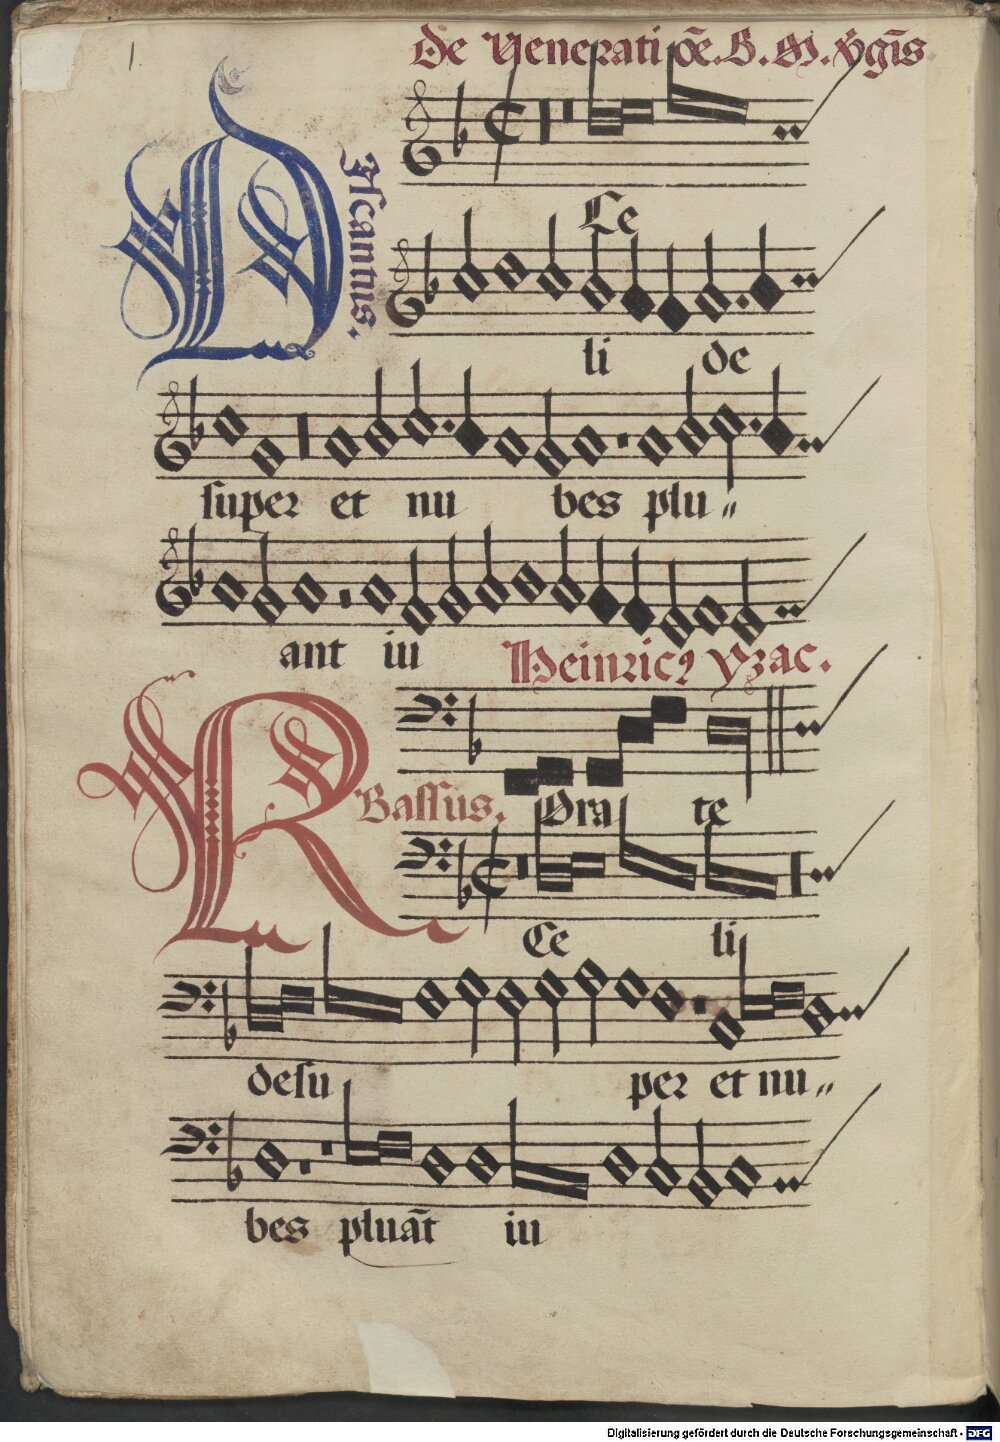 1.
De Veneratiōe. B. M. v̄gīs.
Discantus.
Ce
li de
super et nu bes plu〃
ant iu
Heinricꝰ yzac.
R
Bassus. Orate
Ce li
desu per et nu〃
bes pluāt iu
Digitalisierung gefördert durch die Deutsche Forschungsgemeinschaft - DFG